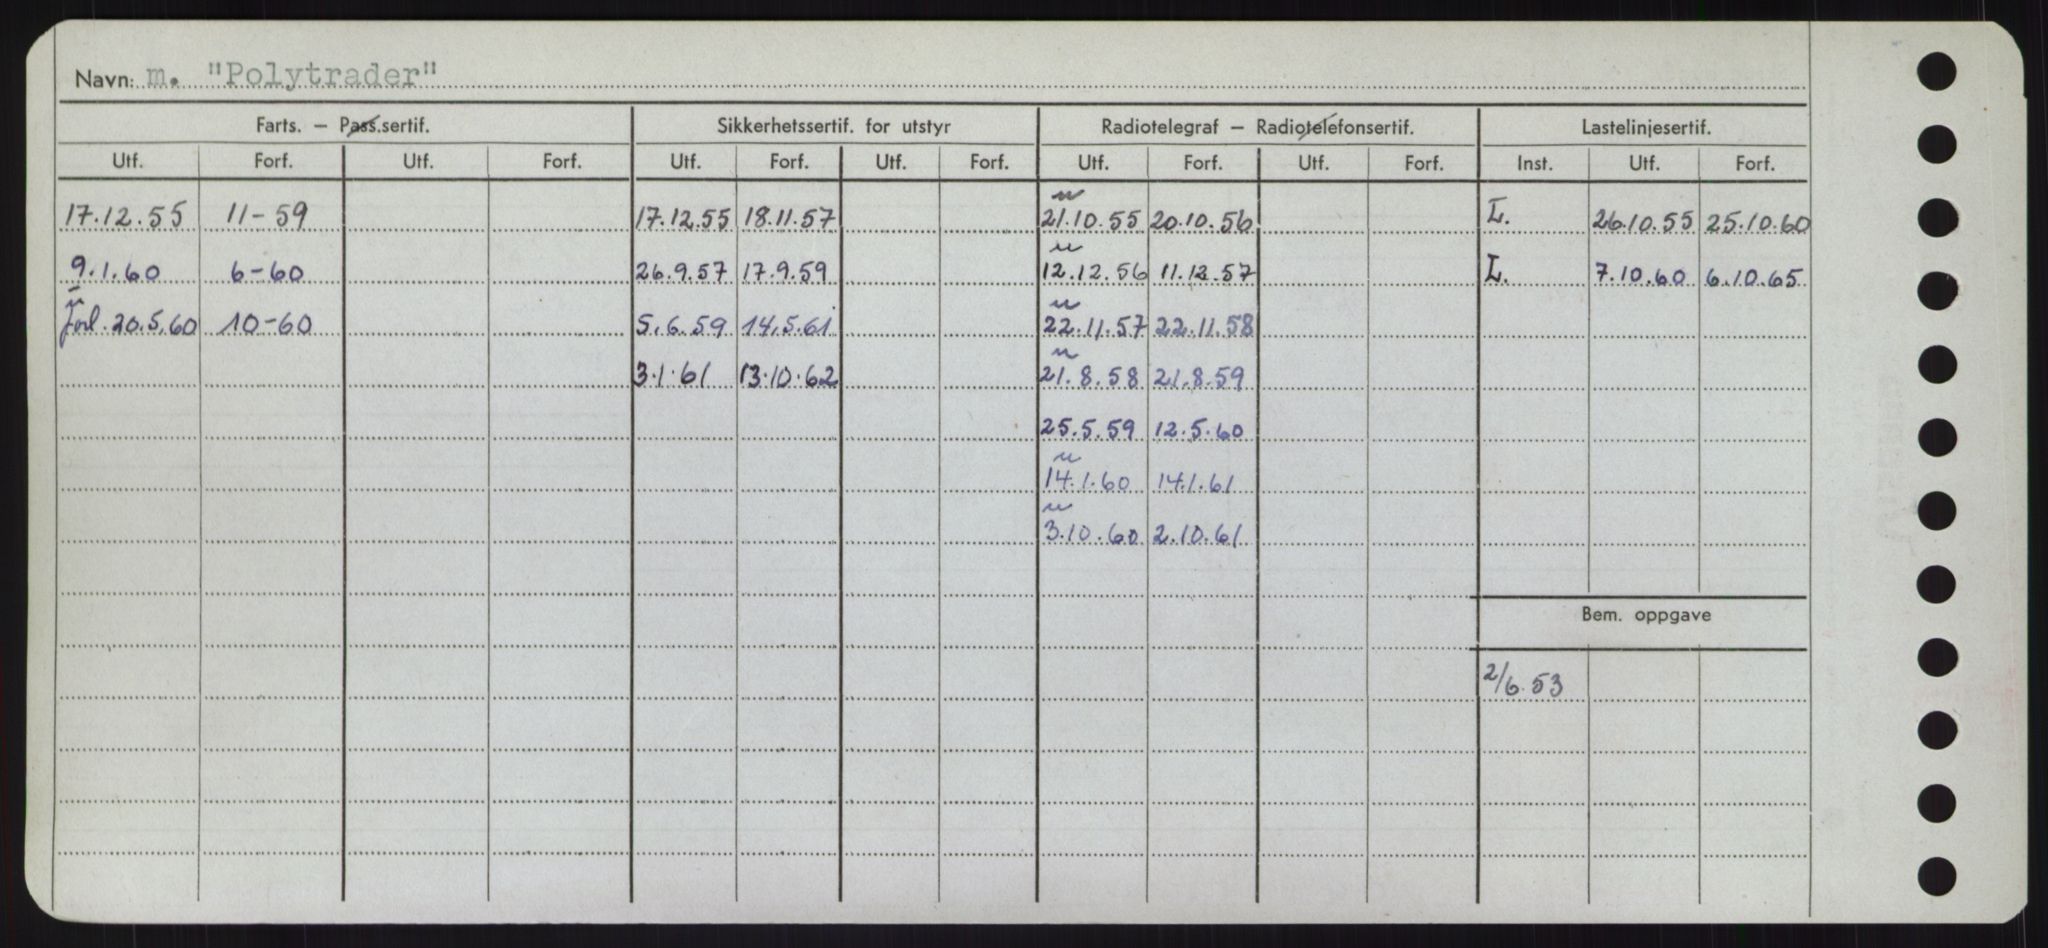 Navn: m. "Polytrader"
Farts. – Pass.sertif. Sikkerhetssertif. for utstyr Radiotelegraf – Radiotelefonsertif. Lastelinjesertif.
Utf. Forf. Utf. Forf. Utf. Forf. Utf. Forf. Utf. Forf. Utf. Forf. Inst. Utf. Forf.
u
17.12.55 11-59 17.12.55 18.11.57 21.10.55 20.10.56 L. 26.10.55 25.10.60
u
9.1.60 6-60 26.9.57 17.9.59 12.12.56 11.12.57 L. 7.10.60 6.10.65
u u
forl. 20.5.60 10-60 5.6.59 14.5.61 22.11.57 22.11.58
u
3.1.61 13.10.62 21.8.58 21.8.59
25.5.59 12.5.60
u
14.1.60 14.1.61
u
3.10.60 2.10.61
Bem. oppgave
2/6.53